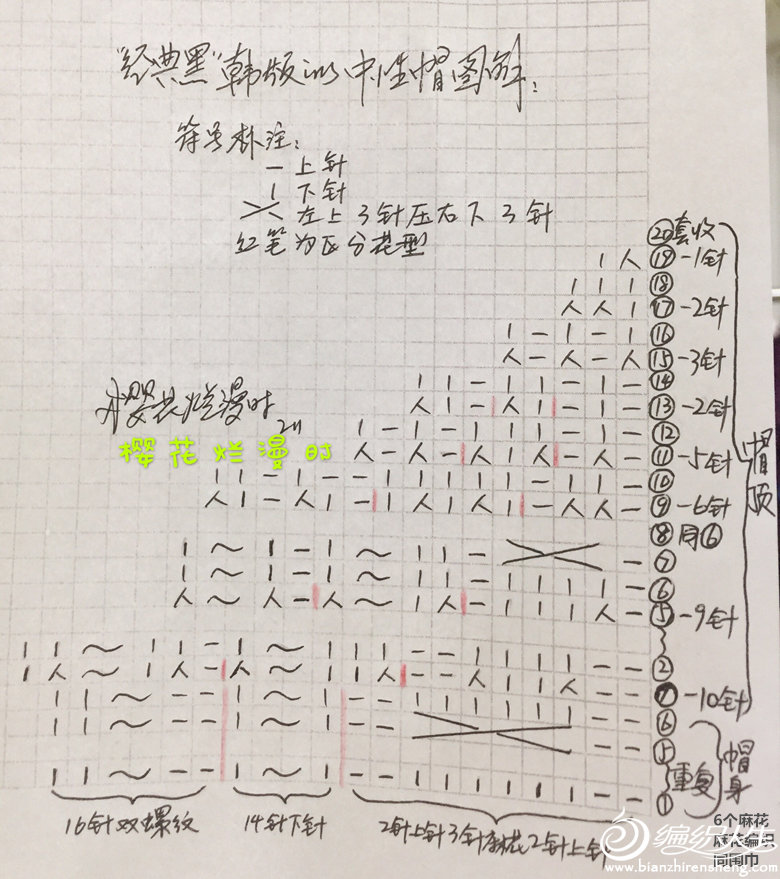 "经典黑"韩版的中性帽图解：
符号标注：
— 上针
| 下针
左上3针压右下3针
红笔为区分花型
⑳套收
⑲ -1针
⑱
⑰ -2针
⑯
⑮ -3针
⑭
⑬ -2针
⑫
⑪ -5针
⑩
⑨ -6针
⑧同⑥
⑦
⑥
⑤ -9针
②
-10针
⑥
⑤
①
帽顶
重复
帽身
樱花烂漫时
樱花烂漫时
16针双螺纹
14针下针
2针上针3针麻花2针上针
6个麻花
麻花编织
同围巾
编织人生
www.bianzhirensheng.com